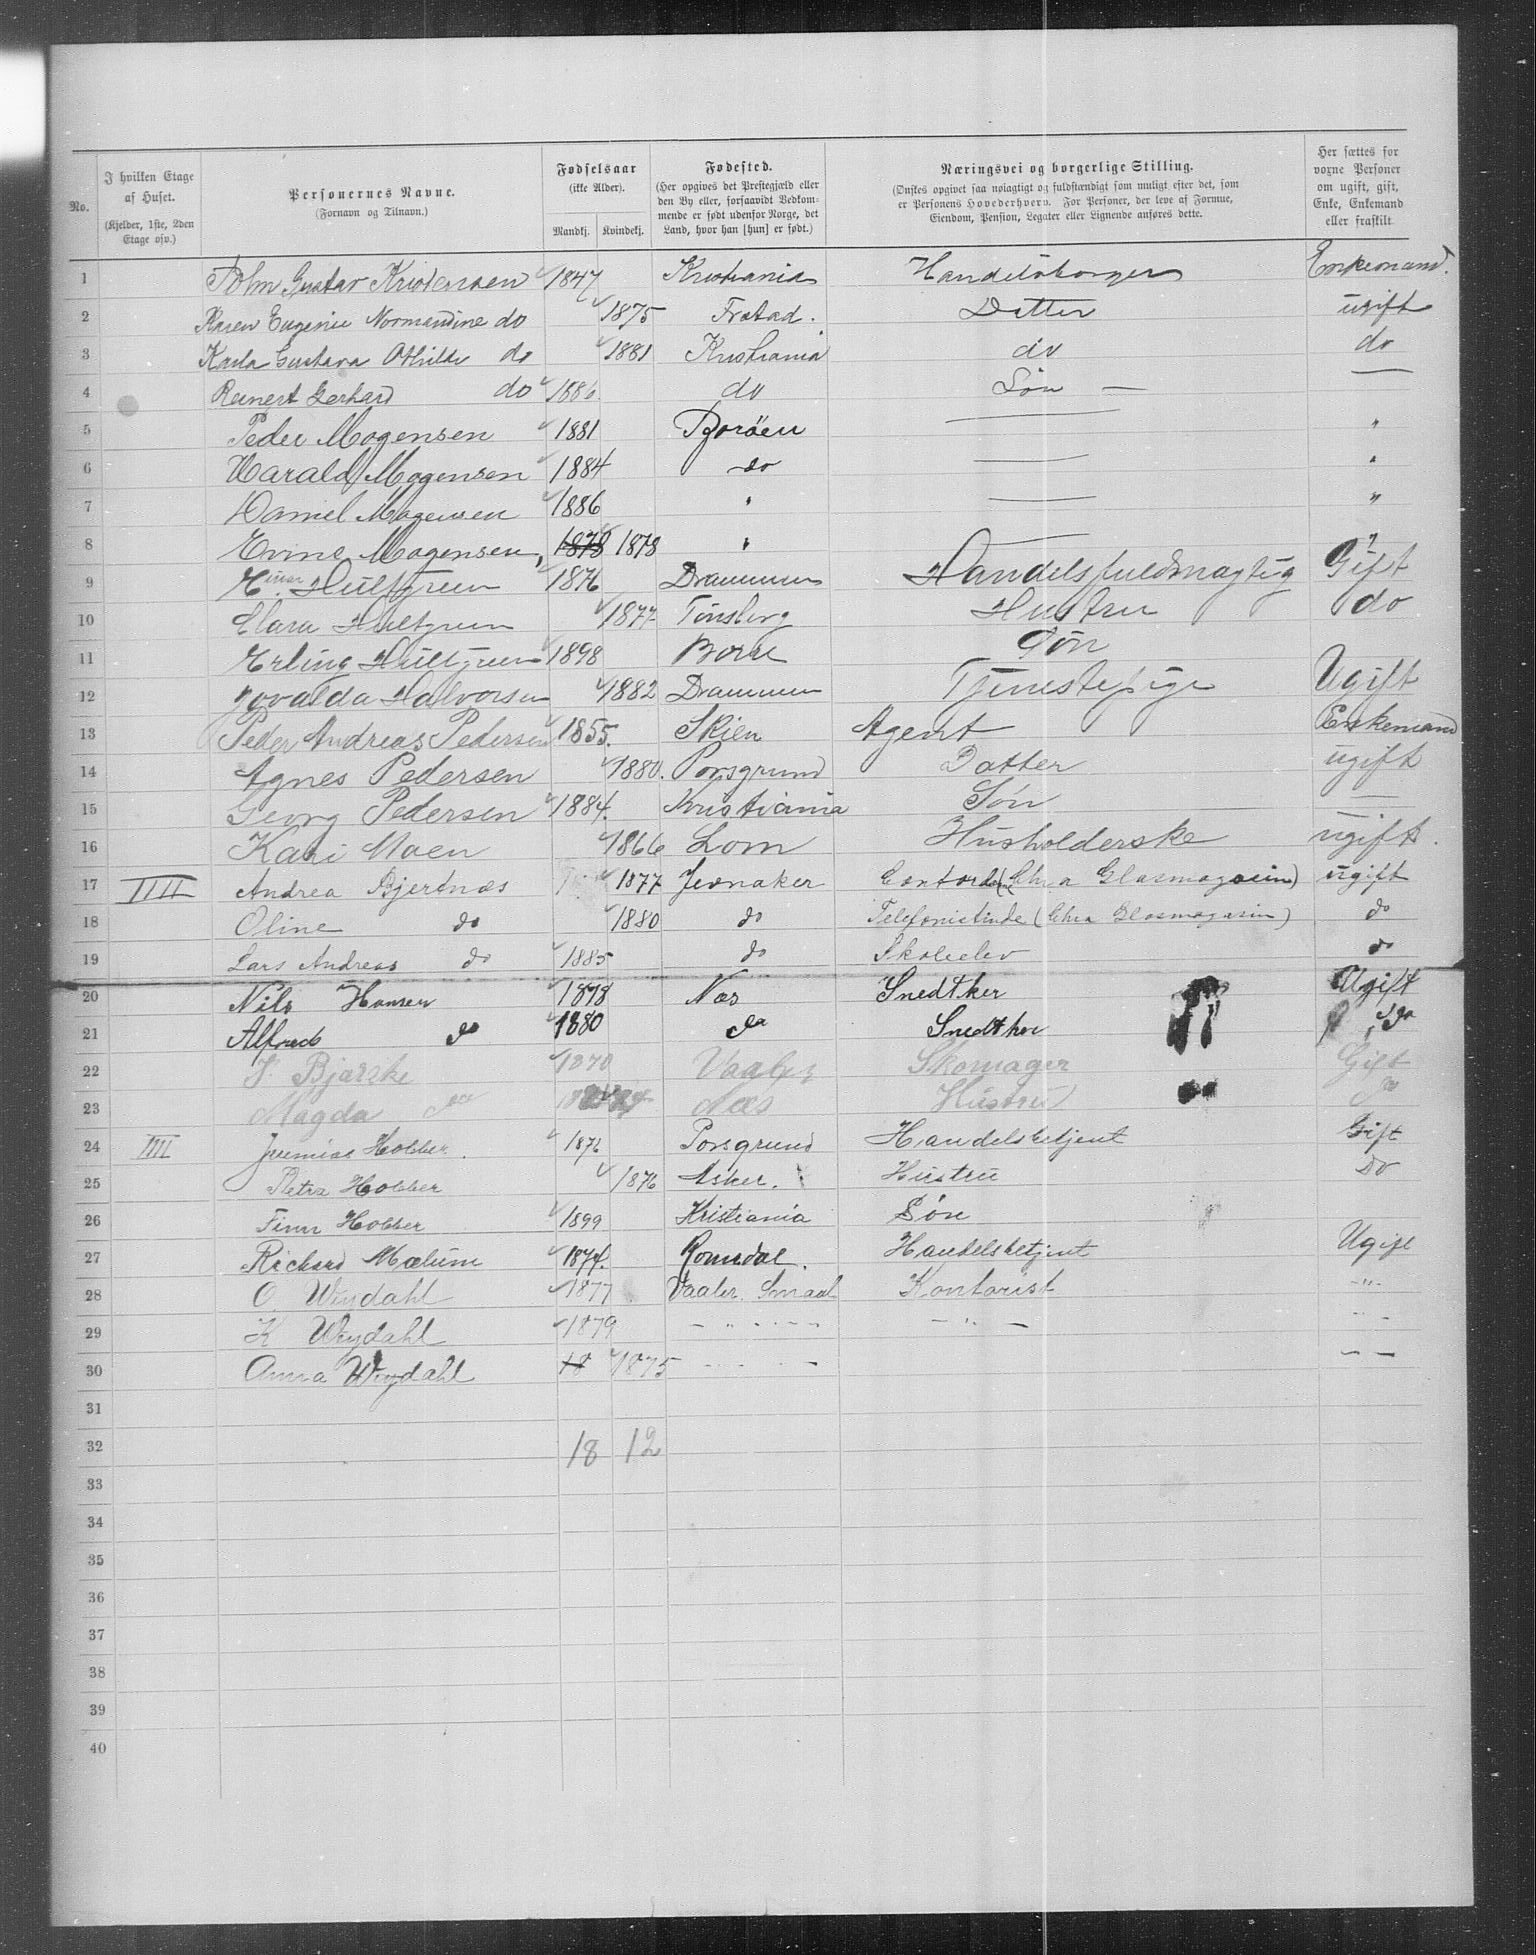 No.
I hvilken Etage af Huset. (Kjelder, 1ste, 2den Etage osv.)
Personernes Navne. (Fornavn og Tilnavn.)
Fødselsaar (ikke Alder). Mandkj. Kvindekj.
Fødested. (Her opgives det Prestegjæld eller den By eller, forsaavidt Bedkommende er født udenfor Norge, det Land, hvor han [hun] er født.)
Næringsvei og borgerlige Stilling. (Ønskes opgivet saa nøiagtigt og fuldstændigt som muligt efter det, som er Personens Hovederhverv. For Personer, der leve af Formue, Eiendom, Pension, Legater eller Lignende anføres dette.)
Her sættes for voxne Personer om ugift, gift, Enke, Enkemand eller fraskilt.
1 John Gustav Kristensen 1847 Kristiania Handelsborger Enkemand.
2 Karen Eugenie Normandine do 1875 Frstad. Datter ugift
3 Karla Gustava Othilde do 1881 Kristiania do do
4 Reinert Gerhard do 1886 do Søn —
5 Peder Mogensen 1881 Borøen — "
6 Harald Mogensen 1884 do — "
7 Daniel Mogensen 1886 " — "
8 Mogensen, 1878 1878 " — "
9 Hultgreen 1876 Drammen Handelsfuldmægtig Gift
10 Clara Hultgreen 1877 Tønsberg Hustru do
11 Erling Hultgreen 1898 Borre Søn
12 Halvorsen 1882 Drammen Tjenestepige Ugift
13 Peder Andreas Pedersen 1855. Skien Agent Enkemand
14 Agnes Pedersen 1880. Porsgrund Datter ugift
15 Georg Pedersen 1884. Kristiania Søn —
16 Kari Moen 1866 Lom Husholderske ugift.
17 IIII Andrea Bjertnæs 1877 Jevnaker (Chra Glasmagasin) ugift
18 Oline do 1880 do Telefonistinde (Chra Glasmagasin) do
19 Lars Andreas do 1885 do Skoleelev do
20 Nils Hansen 1878 Næs Snedtker Ugift
21 Alfred do 1880 do Snedtker do
22 Bjærke 1870 Vaaler Skomager Gift
23 Magda do Næs Hustru do
24 IIII Jeremias Hobber. 1872 Porsgrund Handelsbetjent Gift
25 Petra Hobber 1876 Asker. Hustru Do
26 Finn Hobber 1899 Kristiania Søn
27 Richard Mælum 1874. Romedal. Handelsbetjent Ugift
28 O. Weydahl 1877 Vaaler. Smaal Kontorist - " -
29 K Weydahl 1879 - " - " - - " -
30 Anna Weydahl 18 1875 - - - - — —
31
32 18 12
33
34
35
36
37
38
39
40